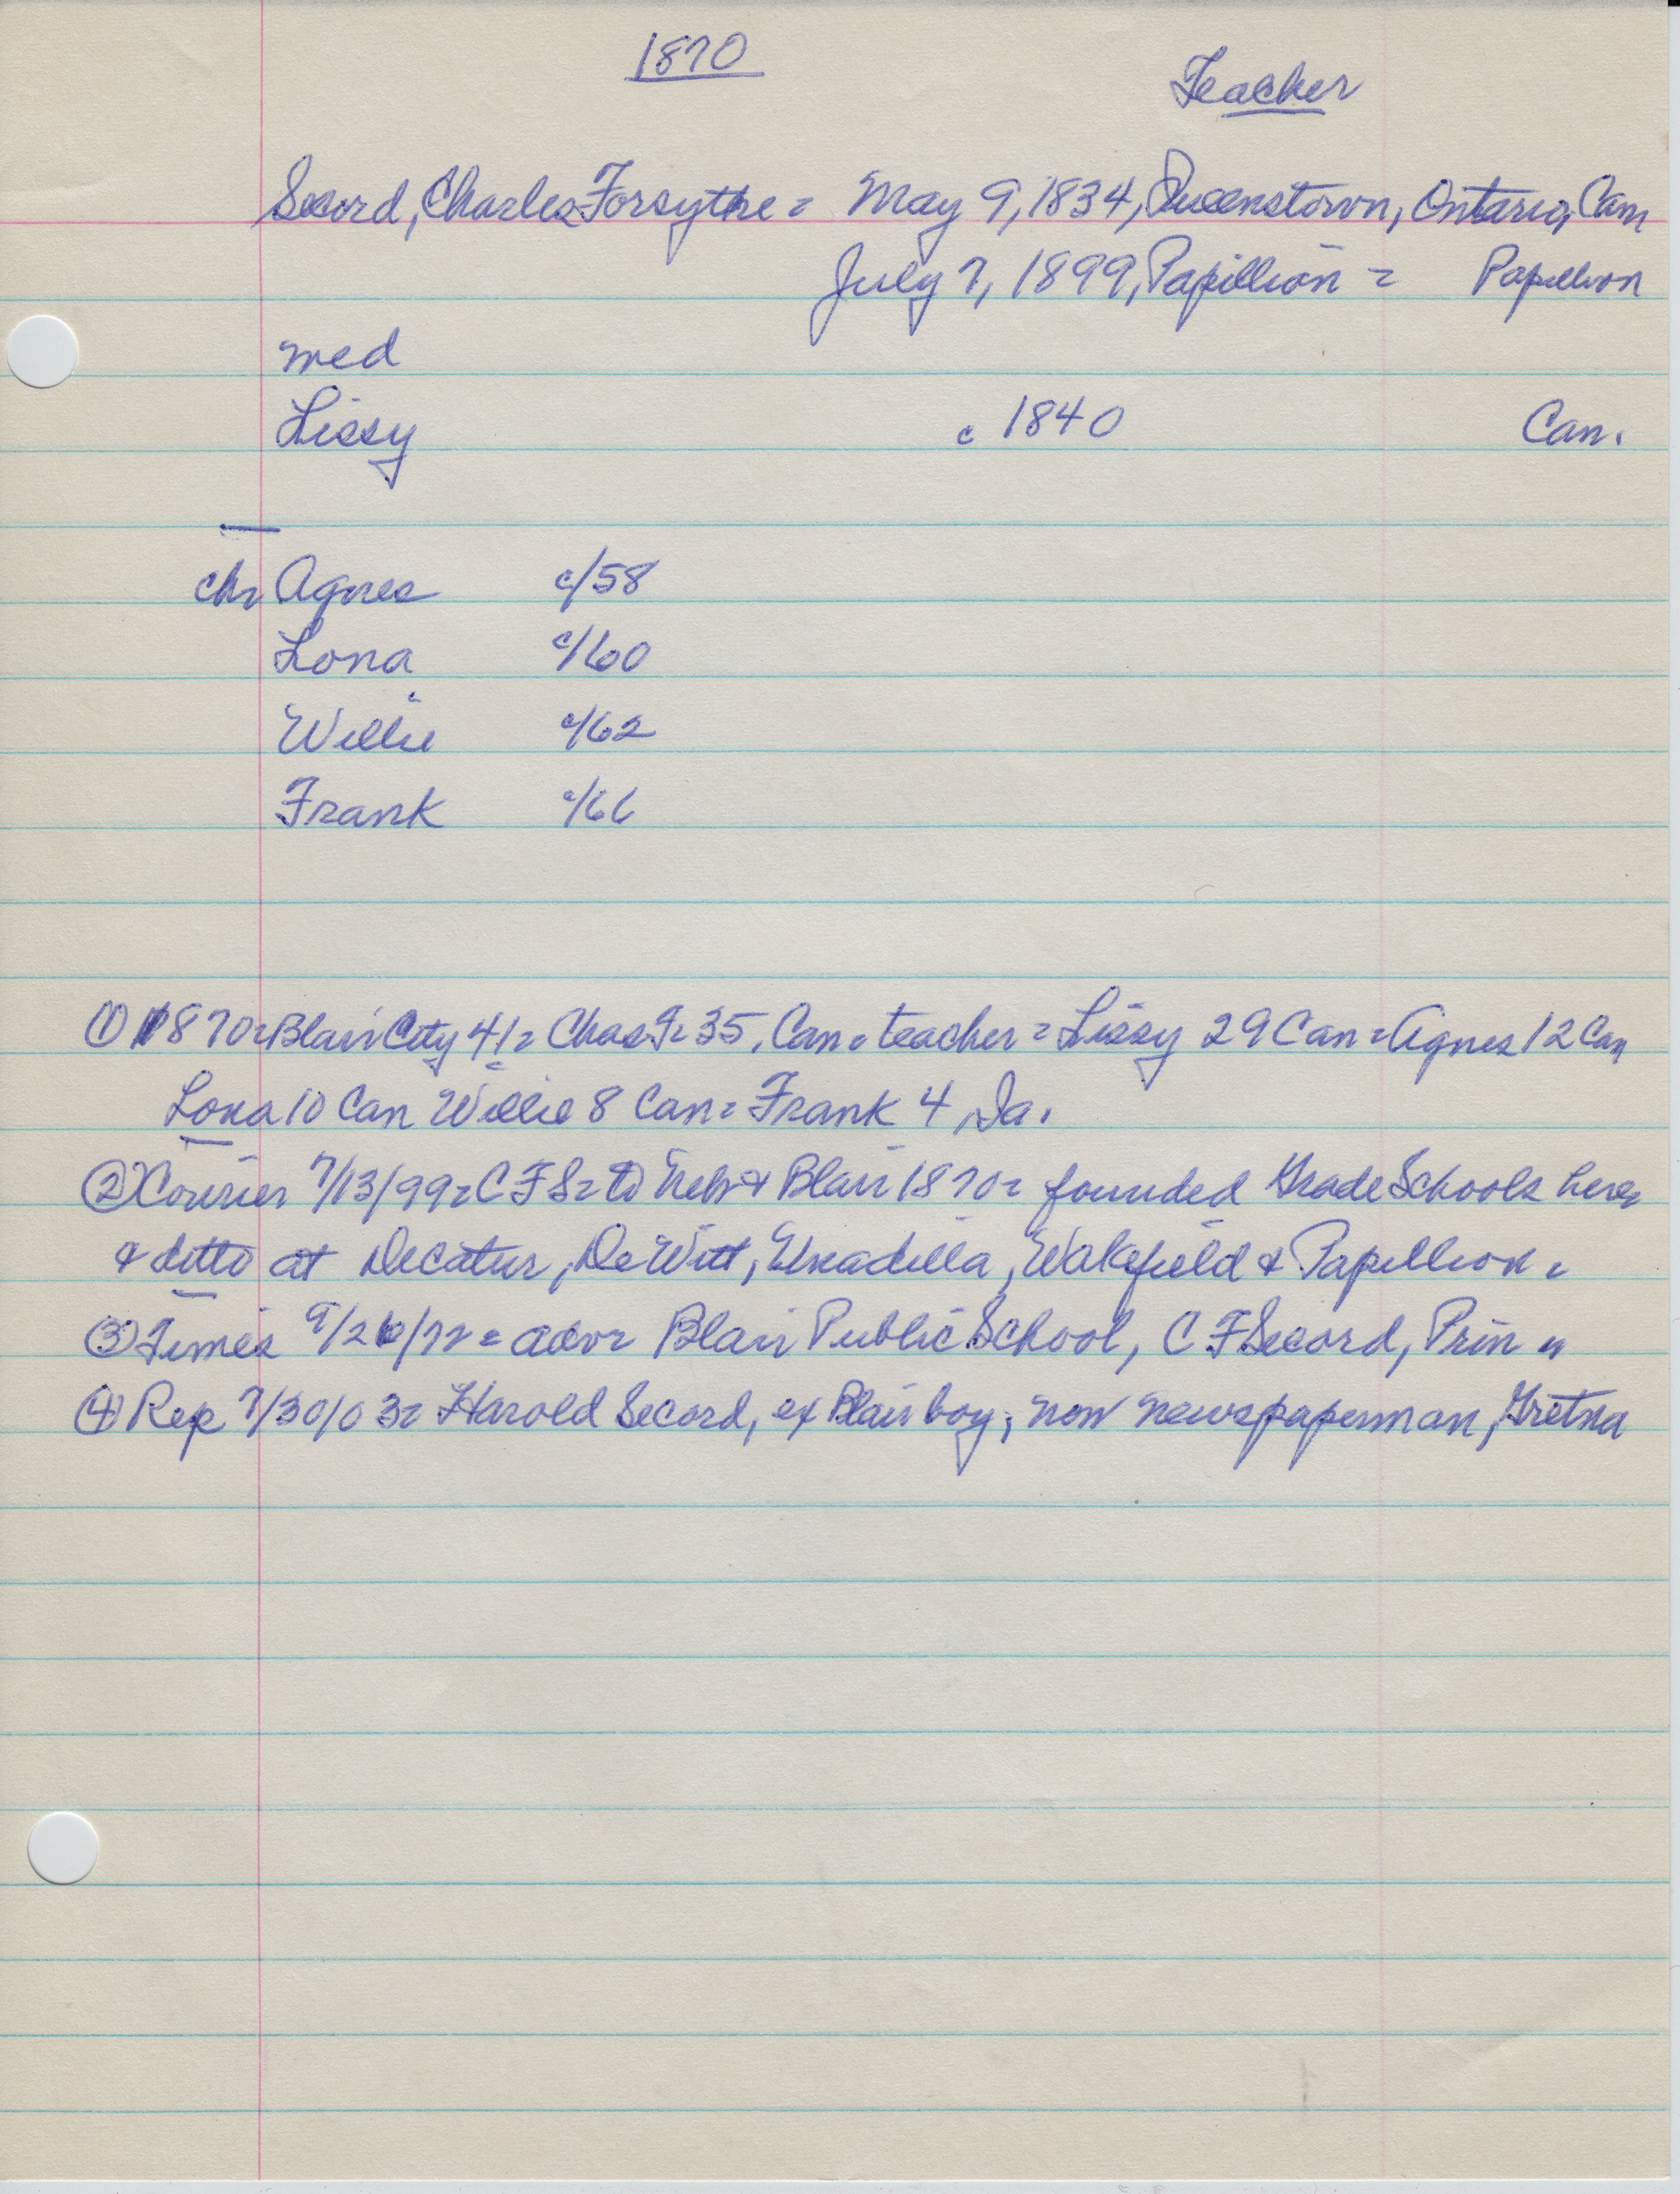 1870
Teacher
Secord, Charles Forsythe = May 9, 1834, Queenstown, Ontario, Can
July 7, 1899, Papillion = Papillion
med
Lissy c 1840 Can.
chr Agnes c/58
Lona c/60
Willie c/62
Frank c/66
① 1870 = Blair City 41 = Chas F = 35, Can = teacher = Lissy 29 Can = Agnes 12 Can
Lona 10 Can Willie 8 Can = Frank 4, Ia.
② Courier 7/13/99 = C F S = to Neb & Blair 1870 = founded Grade Schools here
& ditto at Decatur, DeWitt, Unadilla, Wakefield & Papillion =
③ Times 9/26/72 = adv = Blair Public School, C F Secord, Prin "
④ Rep 7/30/03 = Harold Secord, ex Blair boy, now newspaperman, Gretna